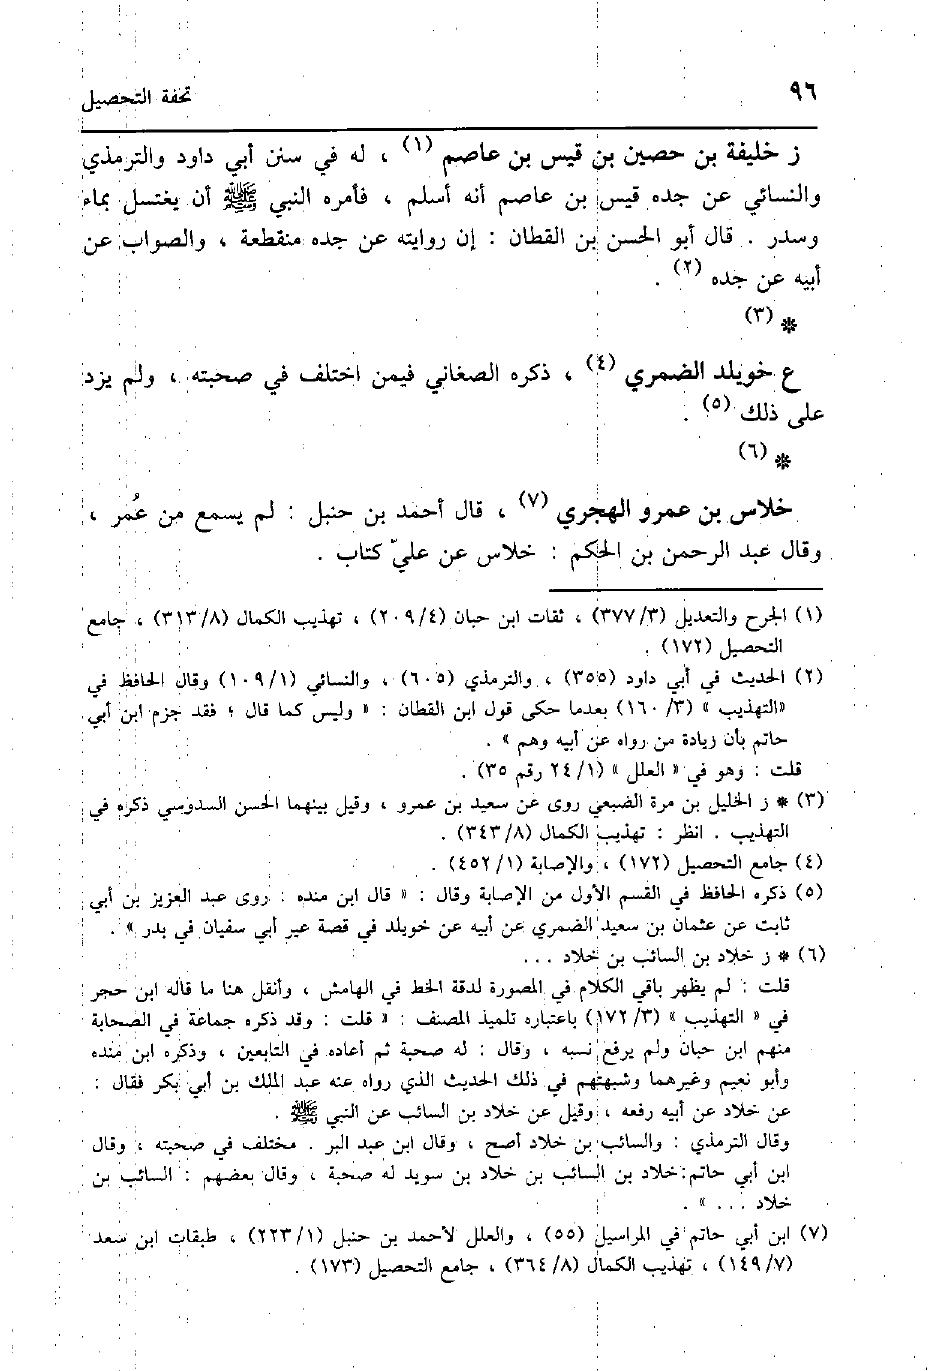 ٩٦ تحفة التحصيل
ز خليفة بن حصين بن قيس بن عاصم (١) ، له في سنن أبي داود والترمذي
والنسائي عن جده قيس بن عاصم أنه أسلم ، فأمره النبي ﷺ أن يغتسل بماء
وسدر . قال أبو الحسن بن القطان : إن روايته عن جده منقطعة ، والصواب عن
أبيه عن جده (٢) .
* (٣)
ع خويلد الضمري (٤) ، ذكره الصغاني فيمن اختلف في صحبته ، ولم يزد
على ذلك (٥) .
* (٦)
خلاس بن عمرو الهجري (٧) ، قال أحمد بن حنبل : لم يسمع من عُمر ،
وقال عبد الرحمن بن الحكم : خلاس عن عليّ كتاب .
(١) الجرح والتعديل (٣/ ٣٧٧) ، ثقات ابن حبان (٤/ ٢٠٩) ، تهذيب الكمال (٨/ ٣١٣) ، جامع
التحصيل (١٧٢) .
(٢) الحديث في أبي داود (٣٥٥) ، والترمذي (٦٠٥) ، والنسائي (١/ ١٠٩) وقال الحافظ في
«التهذيب » (٣/ ١٦٠) بعدما حكى قول ابن القطان : « وليس كما قال ؛ فقد جزم ابن أبي
حاتم بأن زيادة من رواه عن أبيه وهم » .
قلت : وهو في « العلل » (١/ ٢٤ رقم ٣٥) .
(٣) * ز الخليل بن مرة الضبعي روى عن سعيد بن عمرو ، وقيل بينهما الحسن السدوسي ذكره في
التهذيب . انظر : تهذيب الكمال (٨/ ٣٤٣) .
(٤) جامع التحصيل (١٧٢) ، والإصابة (١/ ٤٥٢) .
(٥) ذكره الحافظ في القسم الأول من الإصابة وقال : « قال ابن منده : روى عبد العزيز بن أبي
ثابت عن عثمان بن سعيد الضمري عن أبيه عن خويلد في قصة عير أبي سفيان في بدر » .
(٦) * ز خلاد بن السائب بن خلاد ...
قلت : لم يظهر باقي الكلام في المصورة لدقة الخط في الهامش ، وأنقل هنا ما قاله ابن حجر
في « التهذيب » (٣/ ١٧٢) باعتباره تلميذ المصنف : « قلت : وقد ذكره جماعة في الصحابة
منهم ابن حبان ولم يرفع نسبه ، وقال : له صحبة ثم أعاده في التابعين ، وذكره ابن منده
وأبو نعيم وغيرهما وشبهتهم في ذلك الحديث الذي رواه عنه عبد الملك بن أبي بكر فقال :
عن خلاد عن أبيه رفعه ، وقيل عن خلاد بن السائب عن النبي ﷺ .
وقال الترمذي : والسائب بن خلاد أصح ، وقال ابن عبد البر . مختلف في صحبته ، وقال
ابن أبي حاتم: خلاد بن السائب بن خلاد بن سويد له صحبة ، وقال بعضهم : السائب بن
خلاد ... » .
(٧) ابن أبي حاتم في المراسيل (٥٥) ، والعلل لأحمد بن حنبل (١/ ٢٢٣) ، طبقات ابن سعد
(٧/ ١٤٩) ، تهذيب الكمال (٨/ ٣٦٤) ، جامع التحصيل (١٧٣) .